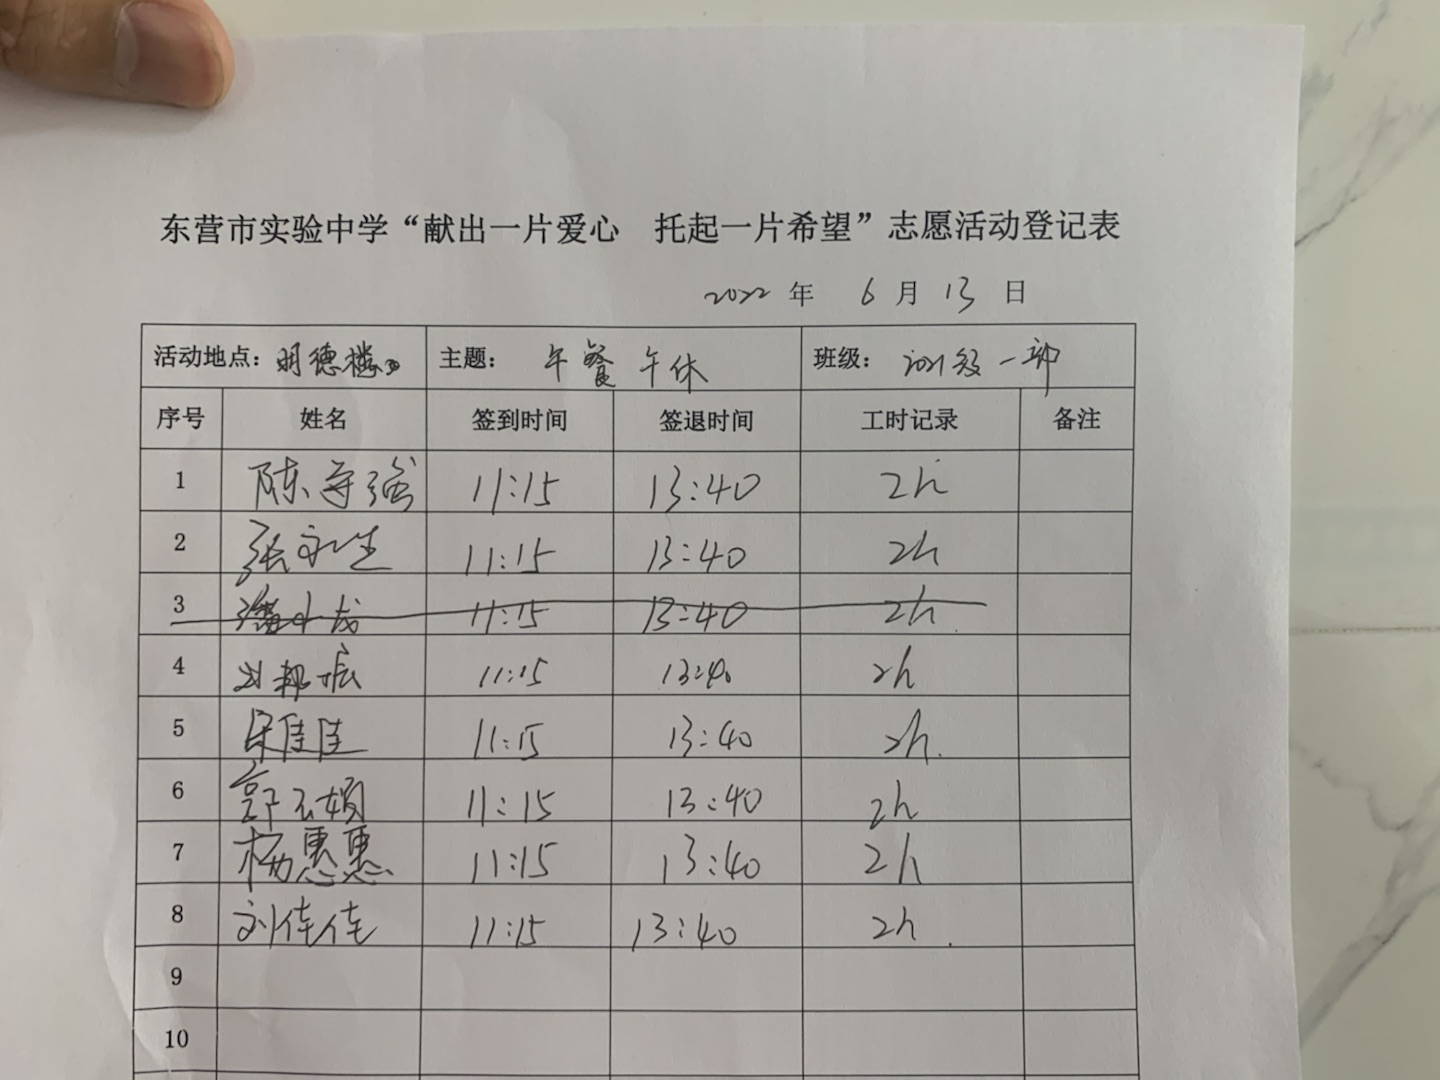 东营市实验中学“献出一片爱心 托起一片希望”志愿活动登记表
2022 年 6 月 13 日
活动地点：明德楼 主题： 午餐 午休 班级： 2021级一部
序号 姓名 签到时间 签退时间 工时记录 备注
1 陈守强 11:15 13:40 2h
2 张永生 11:15 13:40 2h
3 11:15 13:40 2h
4 刘邦宸 11:15 13:40 2h
5 宋佳佳 11:15 13:40 2h.
6 11:15 13:40 2h
7 杨惠惠 11:15 13:40 2h
8 刘佳佳 11:15 13:40 2h.
9
10